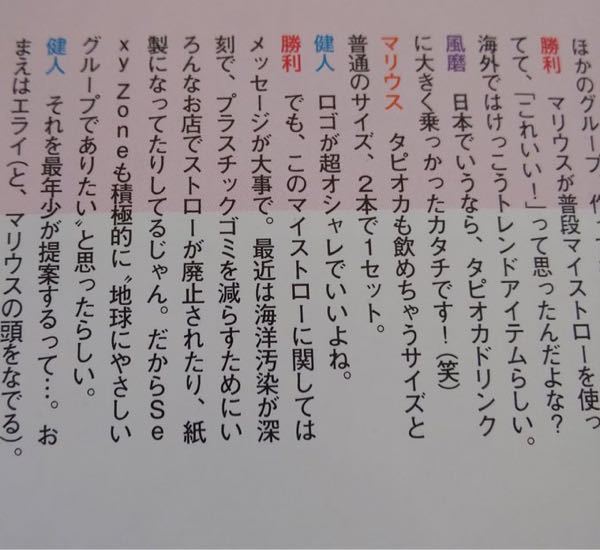 ほかのグループ
勝利　マリウスが普段マイストローを使っ
てて、「これいい！」って思ったんだよな？
海外ではけっこうトレンドアイテムらしい。
風磨　日本でいうなら、タピオカドリンク
に大きく乗っかったカタチです！（笑）
マリウス　タピオカも飲めちゃうサイズと
普通のサイズ、２本で１セット。
健人　ロゴが超オシャレでいいよね。
勝利　でも、このマイストローに関しては
メッセージが大事で。最近は海洋汚染が深
刻で、プラスチックゴミを減らすためにい
ろんなお店でストローが廃止されたり、紙
製になってたりしてるじゃん。だからＳｅ
ｘｙ Ｚｏｎｅも積極的に〝地球にやさしい
グループでありたい〟と思ったらしい。
健人　それを最年少が提案するって…。お
まえはエライ（と、マリウスの頭をなでる）。